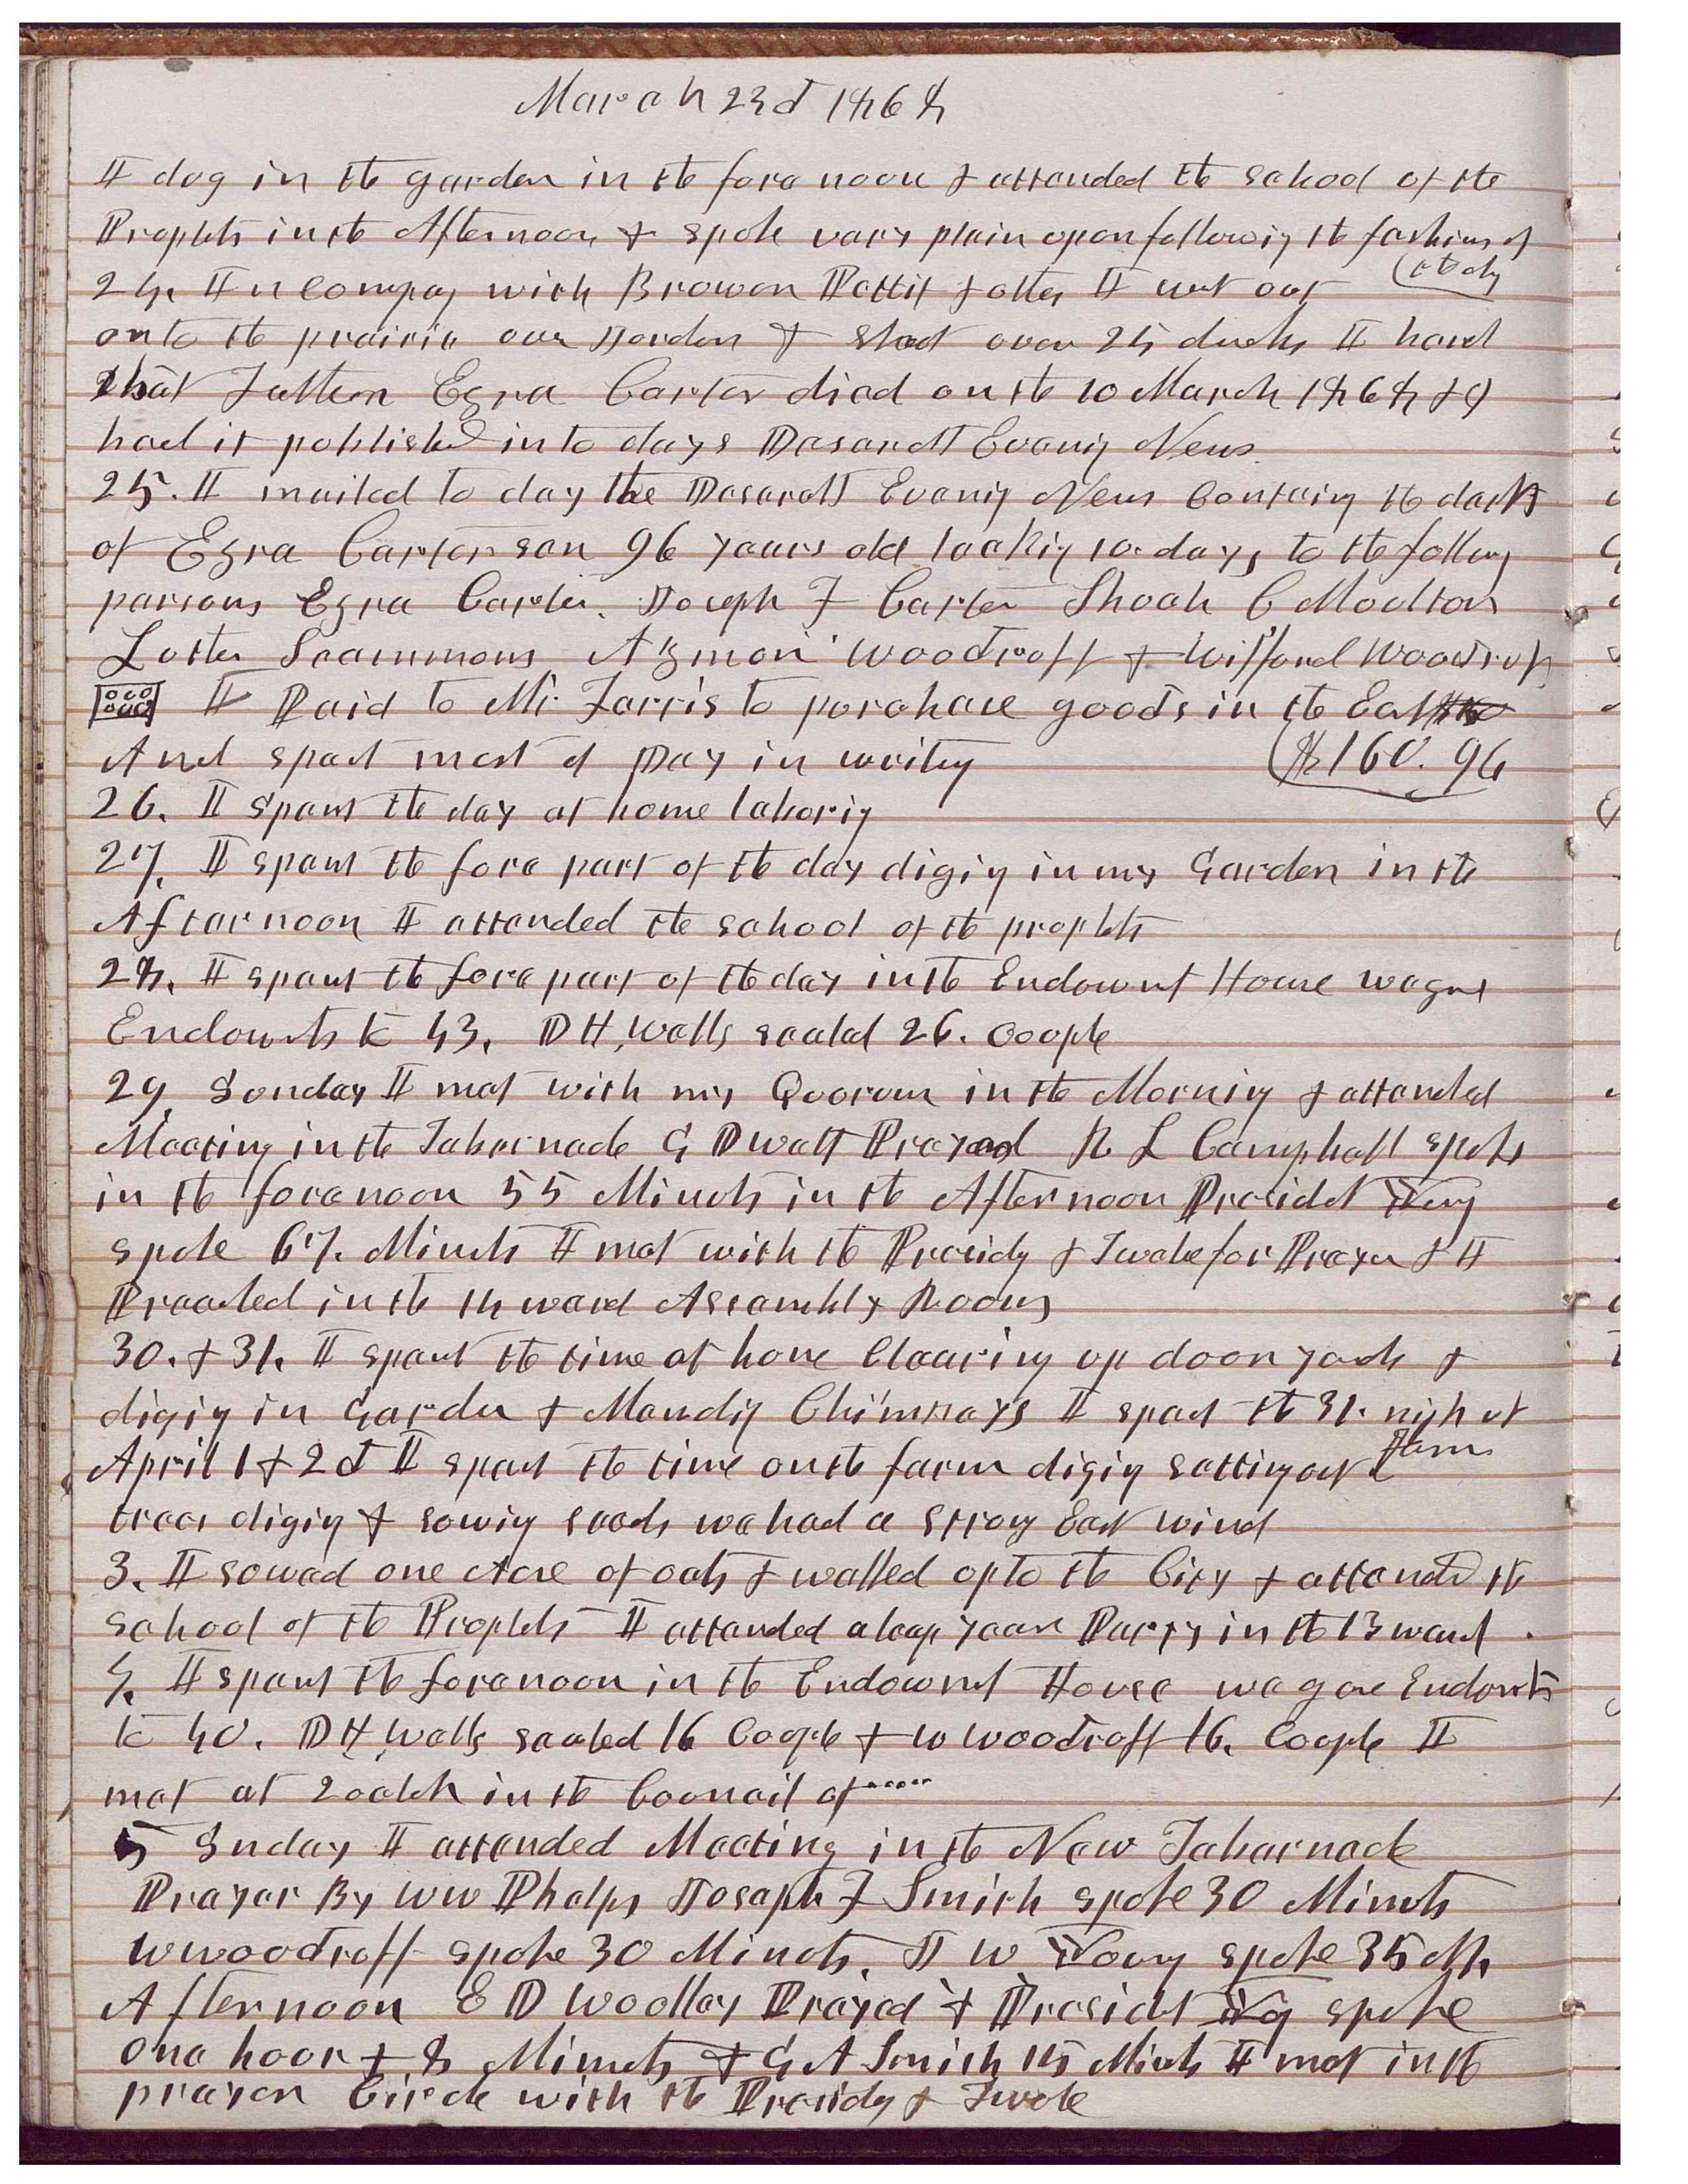 March 23d 1868
I dug in the garden in the fore noon & attended the school of the
Prophets in the Afternoon & spoke vary plain upon following the fashions of
the dy
24. In Company with Browon Pettit & others I went out
onto the prairie over Jordon & shot over 25 ducks I heard
that Father Ezra Carter died on the 10 March 1868 & I
had it publishd in to days Desarett Evenig News
25. I mailed to day the Desarett Evenig News Containg the death
of Ezra Carter sen 96 years old lacking 10 days, to the followg
persons Ezra Carter. Joseph F Carter Shuah C Moulton
Luther Scammons, Azmon Woodruff & Wilford Woodruff
I Paid to Mr Farris to purchase goods in the East
And spent most of Day in writing
$160.96
26. I spent the day at home laborig
27. I spent the fore part of the day digig in my Garden in the
Afternoon I attended the school of the prophets
28. I spent the fore part of the day in the Endowmt House we gave
Endowmts to 43. D H, Wells sealed 26. couple
29 Sunday I met with my Quorum in the Morning & attended
Meeting in the Tabernacle G D Watt Prayed R L Campbell spoke
in the forenoon 55 Minuts in the Afternoon Presidet Yung
spoke 67. Minuts I met with the Presidy & Twelve for Prayer & I
Preached in the 14 ward Assembly Rooms
30. & 31. I spent the time at home Clearing up door yards &
digig in Garden & Mendig Chimneys I spent the 31. night at
Farm
April 1 & 2d I spent the time on the farm digig setting out
trees digig & sowig seeds we had a strong East wind
3. I sowed one Acre of oats & walked up to the City & attended the
school of the Prophets I attended a leap year Party in the 13 ward.
4. I spent the forenoon in the Endowmt House we gave Endowmts
to 40. D H, Wells sealed 16 Couple & W Woodruff 16. Couple I
met at 2 oclok in the Council of .....
5 Sunday I attended Meeting in the New Tabernacle
Prayer By W W Phelps Joseph F Smith spoke 30 Minuts
W Woodruff spoke 30 Minuts. J W Young spoke 35 M.
Afternoon E D Woolley Prayed & Presidet Yug spoke
one hour & 8 Minuts & G A Smith 15 Minuts I met in the
prayer Circle with the Presidy & Twelve